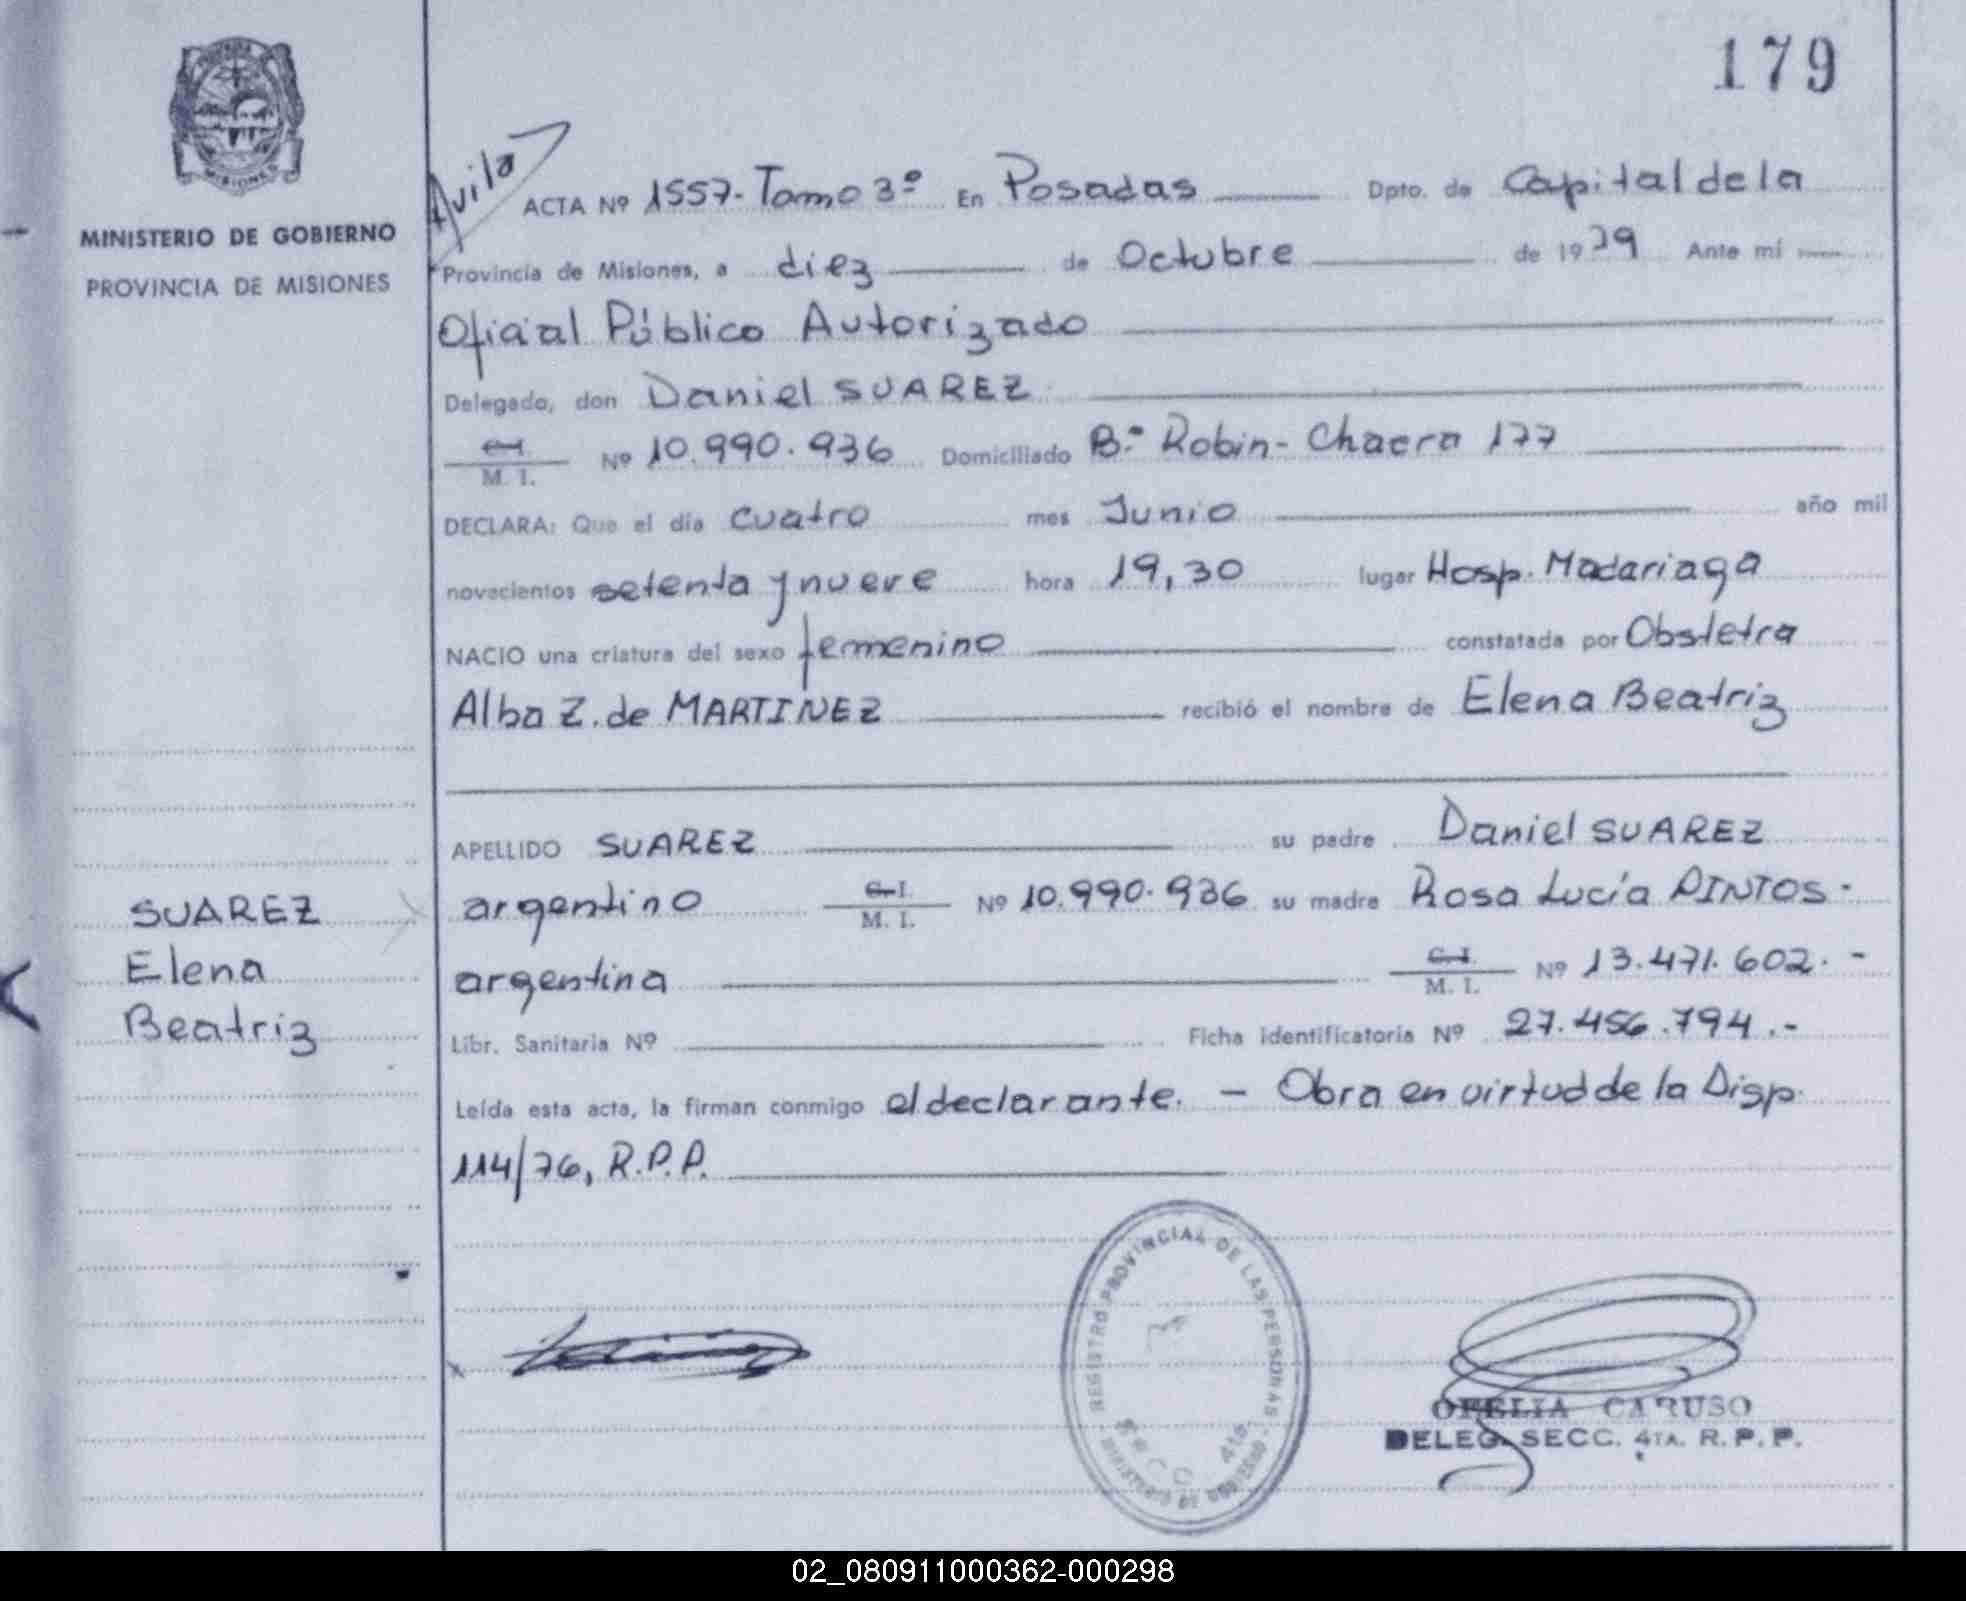 179
MISIONES
MINISTERIO DE GOBIERNO
PROVINCIA DE MISIONES
Avila
ACTA Nº 1557-Tomo 3º En Posadas Dpto. de Capital de la
Provincia de Misiones, a diez de Octubre de 1979 Ante mí
Oficial Público Autorizado
Delegado, don Daniel SUAREZ
C.I.
M. I. Nº 10.990.936 Domiciliado Bº Robin- Chacra 177
DECLARA: Que el día cuatro mes Junio año mil
novecientos setenta y nueve hora 19,30 lugar Hosp. Madariaga
NACIO una criatura del sexo femenino constatada por Obstetra
Alba Z. de MARTINEZ recibió el nombre de Elena Beatriz
APELLIDO SUAREZ su padre Daniel SUAREZ
argentino C.I.
M. I. Nº 10.990.936 su madre Rosa Lucía PINTOS-
argentina C.I.
M. I. Nº 13.471.602.-
Libr. Sanitaria Nº Ficha identificatoria Nº 27.456.794.-
Leída esta acta, la firman conmigo el declarante. - Obra en virtud de la Disp.
114/76, R.P.P.
SUAREZ
Elena
Beatriz
REGISTRO PROVINCIAL DE LAS PERSONAS
MINISTERIO DE GOBIERNO
4ta.
OFELIA CARUSO
DELEG. SECC. 4TA. R. P. P.
02_080911000362-000298